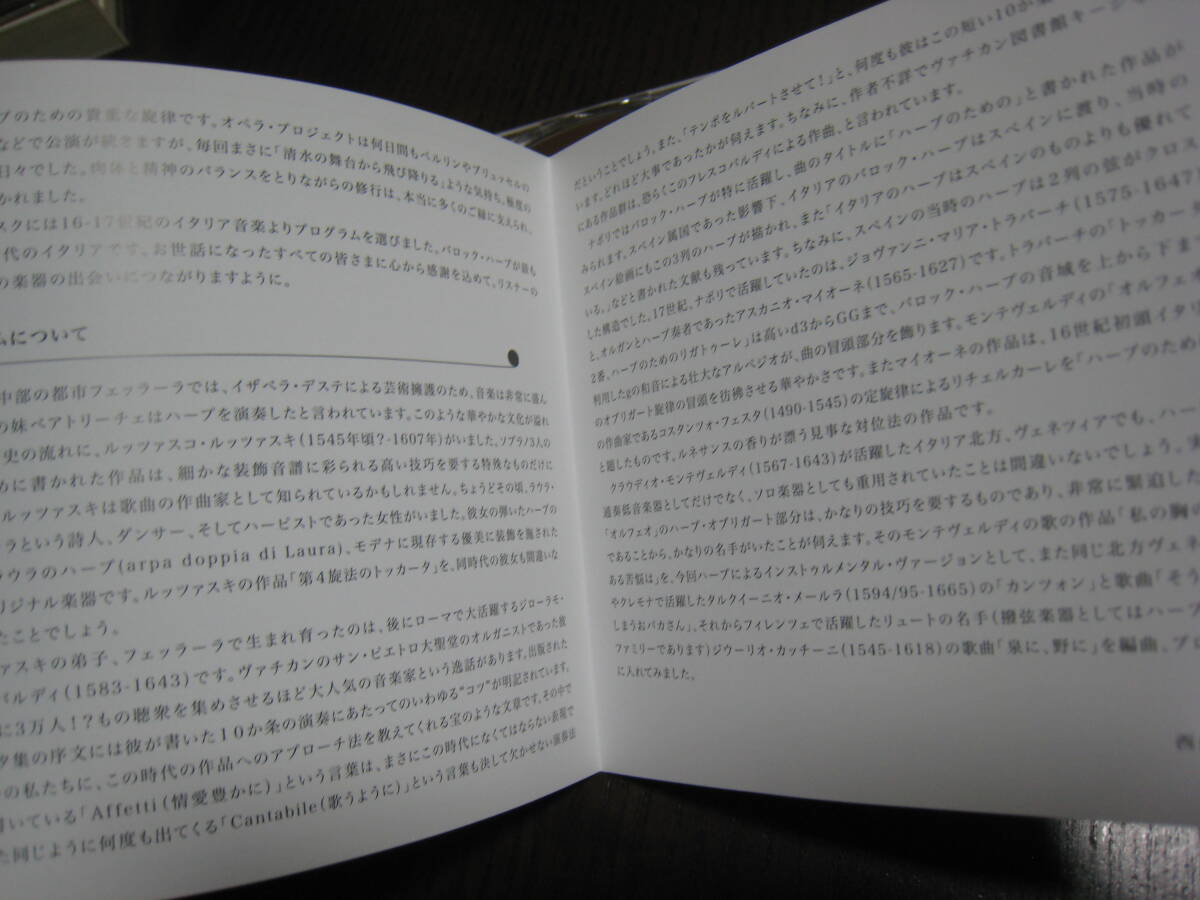 ブのための貴重な旋律です。オペラ・プロジェクトは何日間もベルリンやブリュッセルの
などで公演が続きますが、毎回まさに「清水の舞台から飛び降りる」ような気持ち。極度の
日々でした。肉体と精神のバランスをとりながらの修行は、本当に多くのご縁に支えられ、
かれました。
スクには16-17世紀のイタリア音楽よりプログラムを選びました。バロック・ハープが最も
代のイタリアです。お世話になったすべての皆さまに心から感謝を込めて。リスナーの
の楽器の出会いにつながりますように。
ムについて
中部の都市フェッラーラでは、イザベラ・デステによる芸術擁護のため、音楽は非常に盛ん
の妹ベアトリーチェはハープを演奏したと言われています。このような華やかな文化が溢れ
史の流れに、ルッツァスコ・ルッツァスキ(1545年頃?-1607年)がいました。ソプラノ3人の
めに書かれた作品は、細かな装飾音譜に彩られる高い技巧を要する特殊なものだけに
ルッツァスキは歌曲の作曲家として知られているかもしれません。ちょうどその頃、ラウラ・
ラという詩人、ダンサー、そしてハーピストであった女性がいました。彼女の弾いたハープの
ラウラのハープ(arpa doppia di Laura)、モデナに現存する優美に装飾を施された
リジナル楽器です。ルッツァスキの作品「第4旋法のトッカータ」を、同時代の彼女も間違いな
たことでしょう。
ァスキの弟子、フェッラーラで生まれ育ったのは、後にローマで大活躍するジローラモ・
バルディ(1583-1643)です。ヴァチカンのサン・ピエトロ大聖堂のオルガニストであった彼
に3万人!?もの聴衆を集めさせるほど大人気の音楽家という逸話があります。出版された
タ集の序文には彼が書いた10か条の演奏にあたってのいわゆる"コツ"が明記されています。
の私たちに、この時代の作品へのアプローチ法を教えてくれる宝のような文章です。その中で
書いている「Affetti(情愛豊かに)」という言葉は、まさにこの時代になくてはならない表現で
た同じように何度も出てくる「Cantabile(歌うように)」という言葉も決して欠かせない演奏法
だということでしょう。また、「テンポをルバートさせて!」と、何度も彼はこの短い10か条
います。どれほど大事であったかが伺えます。ちなみに、作者不詳でヴァチカン図書館キージ
にある作品群は、恐らくこのフレスコバルディによる作曲、と言われています。
ナポリではバロック・ハープが特に活躍し、曲のタイトルに「ハープのための」と書かれた作品が
みられます。スペイン属国であった影響下、イタリアのバロック・ハープはスペインに渡り、当時の
スペイン絵画にもこの3列のハープが描かれ、また「イタリアのハープはスペインのものよりも優れて
いる。」などと書かれた文献も残っています。ちなみに、スペインの当時のハープは2列の弦がクロス
した構造でした。17世紀、ナポリで活躍していたのは、ジョヴァンニ・マリア・トラバーチ(1575-1647)
と、オルガンとハープ奏者であったアスカニオ・マイオーネ(1565-1627)です。トラバーチの「トッカー
2番、ハープのためのリガトゥーレ」は高いd3からGGまで、バロック・ハープの音域を上から下ま
利用したgの和音による壮大なアルペジオが、曲の冒頭部分を飾ります。モンテヴェルディの「オルフェ
のオブリガート旋律の冒頭を彷彿させる華やかさです。またマイオーネの作品は、16世紀初頭イタリ
の作曲家であるコスタンツォ・フェスタ(1490-1545)の定旋律によるリチェルカーレを「ハープのため
と題したものです。ルネサンスの香りが漂う見事な対位法の作品です。
クラウディオ・モンテヴェルディ(1567-1643)が活躍したイタリア北方、ヴェネツィアでも、ハー
通奏低音楽器としてだけでなく、ソロ楽器としても重用されていたことは間違いないでしょう。実
「オルフェオ」のハープ・オブリガート部分は、かなりの技巧を要するものであり、非常に緊迫した
であることから、かなりの名手がいたことが伺えます。そのモンテヴェルディの歌の作品「私の胸の
ある苦悩は」を、今回ハープによるインストゥルメンタル・ヴァージョンとして、また同じ北方ヴェネ
やクレモナで活躍したタルクイーニオ・メールラ(1594/95-1665)の「カンツォン」と歌曲「そう
しまうおバカさん」、それからフィレンツェで活躍したリュートの名手(撥弦楽器としてはハープ
ファミリーであります)ジウーリオ・カッチーニ(1545-1618)の歌曲「泉に、野に」を編曲、プロ
に入れてみました。
西